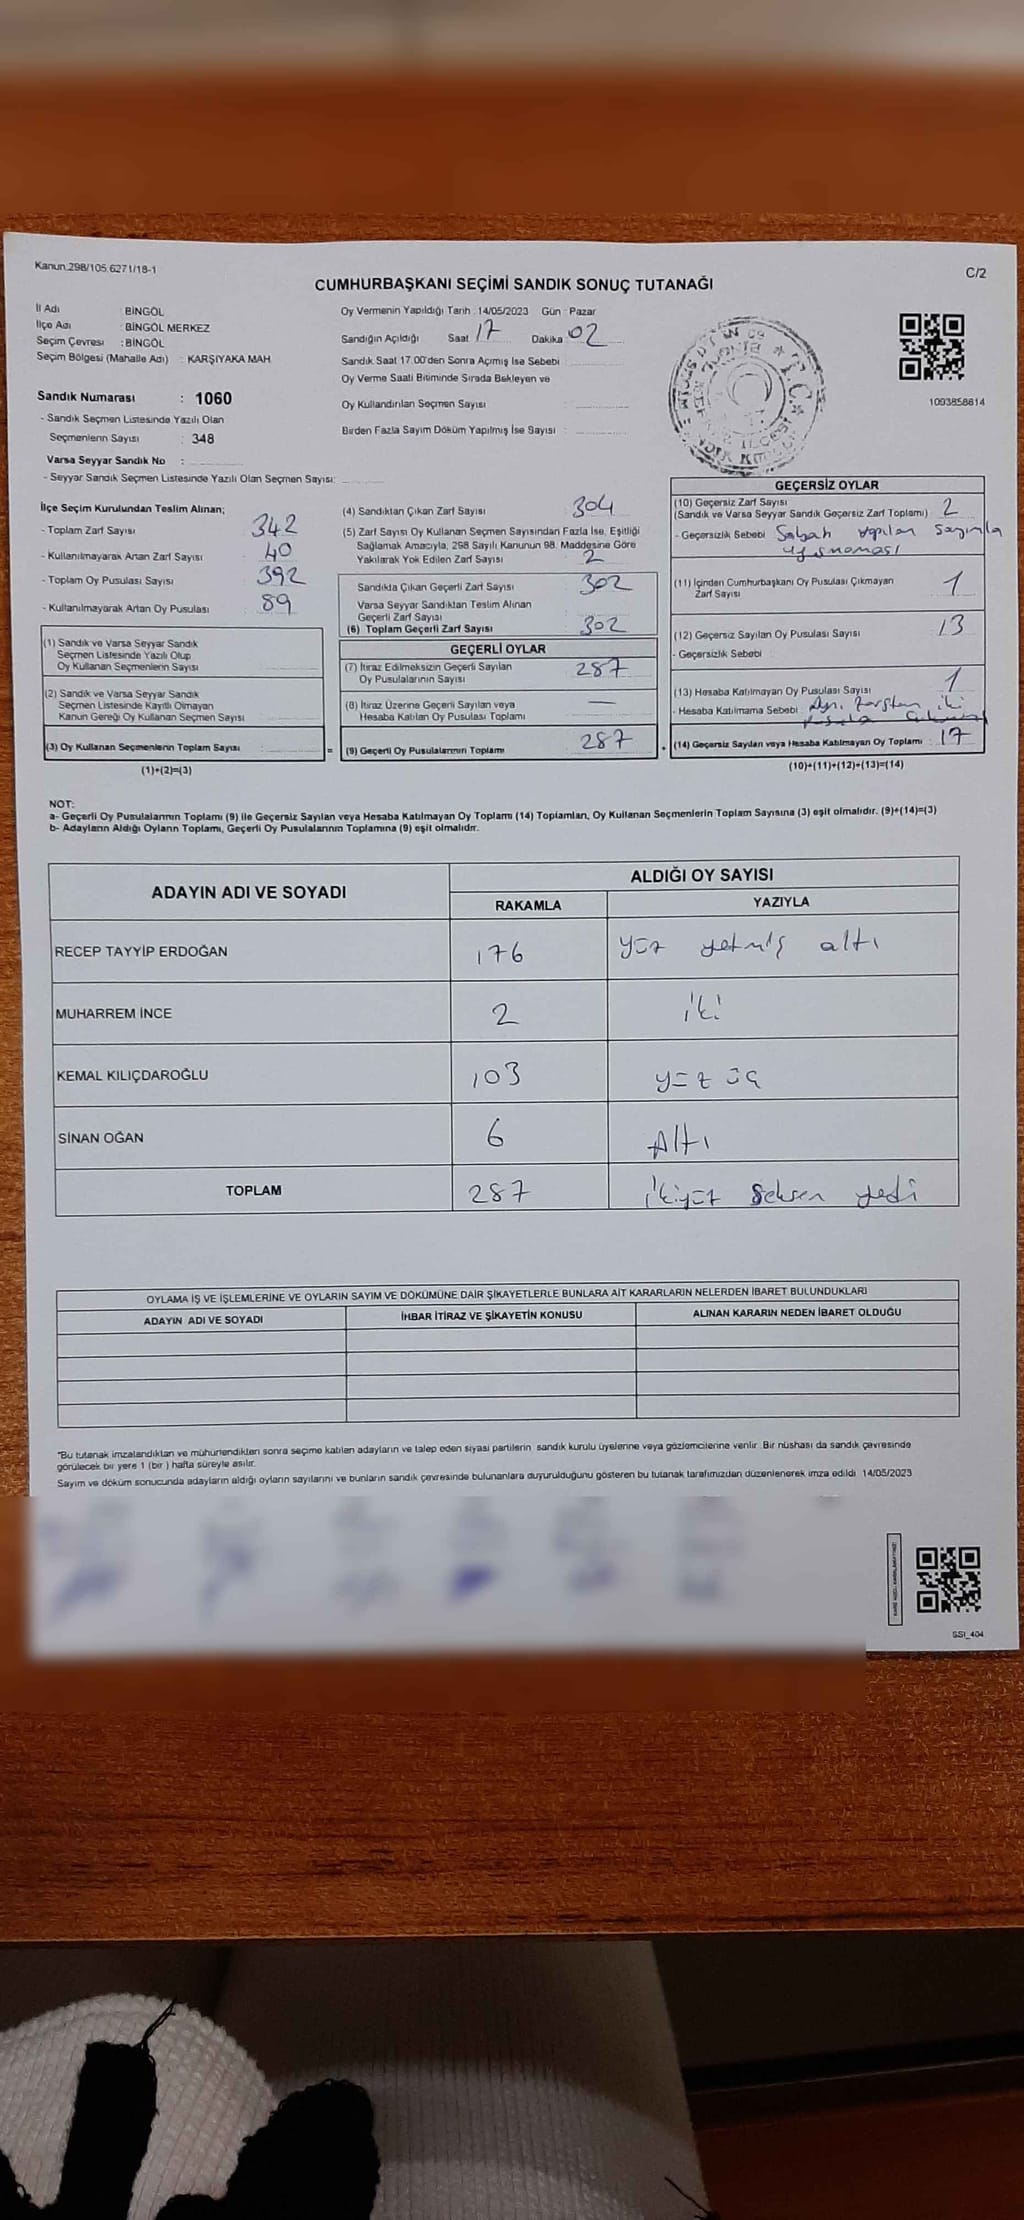 Kanun.298/105.6271/18-1
C/2
CUMHURBAŞKANI SEÇİMİ SANDIK SONUÇ TUTANAĞI
İl Adı : BİNGÖL
İlçe Adı : BİNGÖL MERKEZ
Seçim Çevresi : BİNGÖL
Seçim Bölgesi (Mahalle Adı) : KARŞIYAKA MAH.
Sandık Numarası : 1060
- Sandık Seçmen Listesinde Yazılı Olan
Seçmenlerin Sayısı : 348
Varsa Seyyar Sandık No :
- Seyyar Sandık Seçmen Listesinde Yazılı Olan Seçmen Sayısı:
Oy Vermenin Yapıldığı Tarih : 14/05/2023 Gün : Pazar
Sandığın Açıldığı Saat 17 Dakika 02
Sandık Saat 17.00'den Sonra Açmış İse Sebebi
Oy Verme Saati Bitiminde Sırada Bekleyen ve
Oy Kullandırılan Seçmen Sayısı :
Birden Fazla Sayım Döküm Yapılmış İse Sayısı :
1093858814
İlçe Seçim Kurulundan Teslim Alınan;
- Toplam Zarf Sayısı : 342
- Kullanılmayarak Artan Zarf Sayısı : 40
- Toplam Oy Pusulası Sayısı : 392
- Kullanılmayarak Artan Oy Pusulası : 89
(1) Sandık ve Varsa Seyyar Sandık
Seçmen Listesinde Yazılı Olup
Oy Kullanan Seçmenlerin Sayısı :
(2) Sandık ve Varsa Seyyar Sandık
Seçmen Listesinde Kayıtlı Olmayan
Kanun Gereği Oy Kullanan Seçmen Sayısı :
(3) Oy Kullanan Seçmenlerin Toplam Sayısı :
(1)+(2)=(3)
(4) Sandıktan Çıkan Zarf Sayısı : 304
(5) Zarf Sayısı Oy Kullanan Seçmen Sayısından Fazla İse, Eşitliği
Sağlamak Amacıyla, 298 Sayılı Kanunun 98. Maddesine Göre
Yakılarak Yok Edilen Zarf Sayısı : 2
Sandıkta Çıkan Geçerli Zarf Sayısı : 302
Varsa Seyyar Sandıktan Teslim Alınan
Geçerli Zarf Sayısı
(6) Toplam Geçerli Zarf Sayısı : 302
GEÇERLİ OYLAR
(7) İtiraz Edilmeksizin Geçerli Sayılan
Oy Pusulalarının Sayısı : 287
(8) İtiraz Üzerine Geçerli Sayılan veya
Hesaba Katılan Oy Pusulası Toplamı : —
(9) Geçerli Oy Pusulalarının Toplamı : 287
GEÇERSİZ OYLAR
(10) Geçersiz Zarf Sayısı
(Sandık ve Varsa Seyyar Sandık Geçersiz Zarf Toplamı) : 2
- Geçersizlik Sebebi : Sabah yapılan sayımla
uyuşmaması
(11) İçinden Cumhurbaşkanı Oy Pusulası Çıkmayan
Zarf Sayısı : 1
(12) Geçersiz Sayılan Oy Pusulası Sayısı : 13
- Geçersizlik Sebebi :
(13) Hesaba Katılmayan Oy Pusulası Sayısı : 1
- Hesaba Katılmama Sebebi : Aynı zarftan iki
(14) Geçersiz Sayılan veya Hesaba Katılmayan Oy Toplamı : 17
(10)+(11)+(12)+(13)=(14)
NOT:
a- Geçerli Oy Pusulalarının Toplamı (9) ile Geçersiz Sayılan veya Hesaba Katılmayan Oy Toplamı (14) Toplamları, Oy Kullanan Seçmenlerin Toplam Sayısına (3) eşit olmalıdır. (9)+(14)=(3)
b- Adayların Aldığı Oyların Toplamı, Geçerli Oy Pusulalarının Toplamına (9) eşit olmalıdır.
ADAYIN ADI VE SOYADI
ALDIĞI OY SAYISI
RAKAMLA YAZIYLA
RECEP TAYYİP ERDOĞAN 176 yüz yetmiş altı
MUHARREM İNCE 2 iki
KEMAL KILIÇDAROĞLU 103 yüz üç
SİNAN OĞAN 6 Altı
TOPLAM 287 İkiyüz Seksen yedi
OYLAMA İŞ VE İŞLEMLERİNE VE OYLARIN SAYIM VE DÖKÜMÜNE DAİR ŞİKAYETLERLE BUNLARA AİT KARARLARIN NELERDEN İBARET BULUNDUKLARI
ADAYIN ADI VE SOYADI İHBAR İTİRAZ VE ŞİKAYETİN KONUSU ALINAN KARARIN NEDEN İBARET OLDUĞU
"Bu tutanak imzalandıktan ve mühürlendikten sonra seçime katılan adayların ve talep eden siyasi partilerin sandık kurulu üyelerine veya gözlemcilerine verilir. Bir nüshası da sandık çevresinde
görülecek bir yere 1 (bir ) hafta süreyle asılır.
Sayım ve döküm sonucunda adayların aldığı oyların sayılarını ve bunların sandık çevresinde bulunanlara duyurulduğunu gösteren bu tutanak tarafımızdan düzenlenerek imza edildi. 14/05/2023
SSI_404